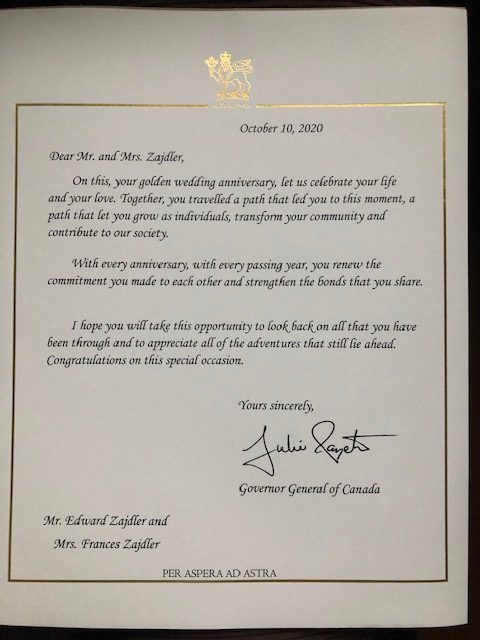 October 10, 2020
Dear Mr. and Mrs. Zajdler,
On this, your golden wedding anniversary, let us celebrate your life
and your love. Together, you travelled a path that led you to this moment, a
path that let you grow as individuals, transform your community and
contribute to our society.
With every anniversary, with every passing year, you renew the
commitment you made to each other and strengthen the bonds that you share.
I hope you will take this opportunity to look back on all that you have
been through and to appreciate all of the adventures that still lie ahead.
Congratulations on this special occasion.
Yours sincerely,
Julie Payette
Governor General of Canada
Mr. Edward Zajdler and
Mrs. Frances Zajdler
PER ASPERA AD ASTRA